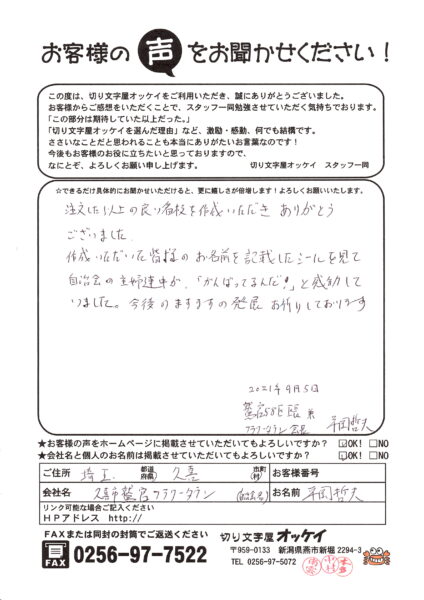 お客様の声をお聞かせください！
この度は、切り文字屋オッケイをご利用いただき、誠にありがとうございました。
お客様からご感想をいただくことで、スタッフ一同勉強させていただく気持ちでおります。
「この部分は期待していた以上だった。」
「切り文字屋オッケイを選んだ理由」など、激励・感動、何でも結構です。
ささいなことだと思われることも本当にありがたいお言葉なのです！
今後もお客様のお役に立ちたいと思っておりますので、
なにとぞ、よろしくお願い申し上げます。 切り文字屋オッケイ スタッフ一同
☆できるだけ具体的にお聞かせいただけると、更に嬉しさが倍増します！よろしくお願いいたします。
注文した以上の良い看板を作成いただき ありがとう
ございました
作成いただいた皆様のお名前を記載したシールを見て
自治会の主婦連中が、「がんばってるんだ！」と感動して
いました。今後のますますの発展 お祈りしております
2021年9月5日
フラワータウン会長 平岡哲夫
★お客様の声をホームページに掲載させていただいてもよろしいですか？ ☑OK! □NO
★会社名と個人のお名前も掲載させていただいてもよろしいですか？ ☑OK! □NO
ご住所 埼玉 都道府県 久喜 市町村 お客様番号
会社名 久喜市 フラワータウン お名前 平岡哲夫
リンク可能な場合ご記入ください
HPアドレス http://
FAXまたは同封の封筒でご返送ください
FAX 0256-97-7522
切り文字屋オッケイ
〒959-0133 新潟県燕市新堀 2294-3
TEL 0256-97-5072